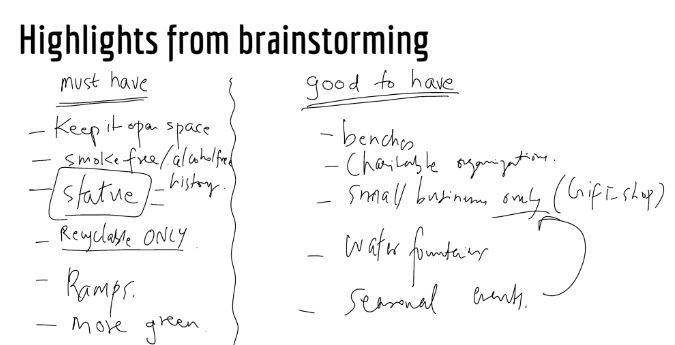 Highlights from brainstorming
must have
- Keep it open space
- smoke free/alcohol free
- statue = history.
- Recyclable ONLY
- Ramps.
- more green.
good to have
- benches
- Charitable organizations.
- small business only (Gift-shop)
- water fountains
- seasonal events.